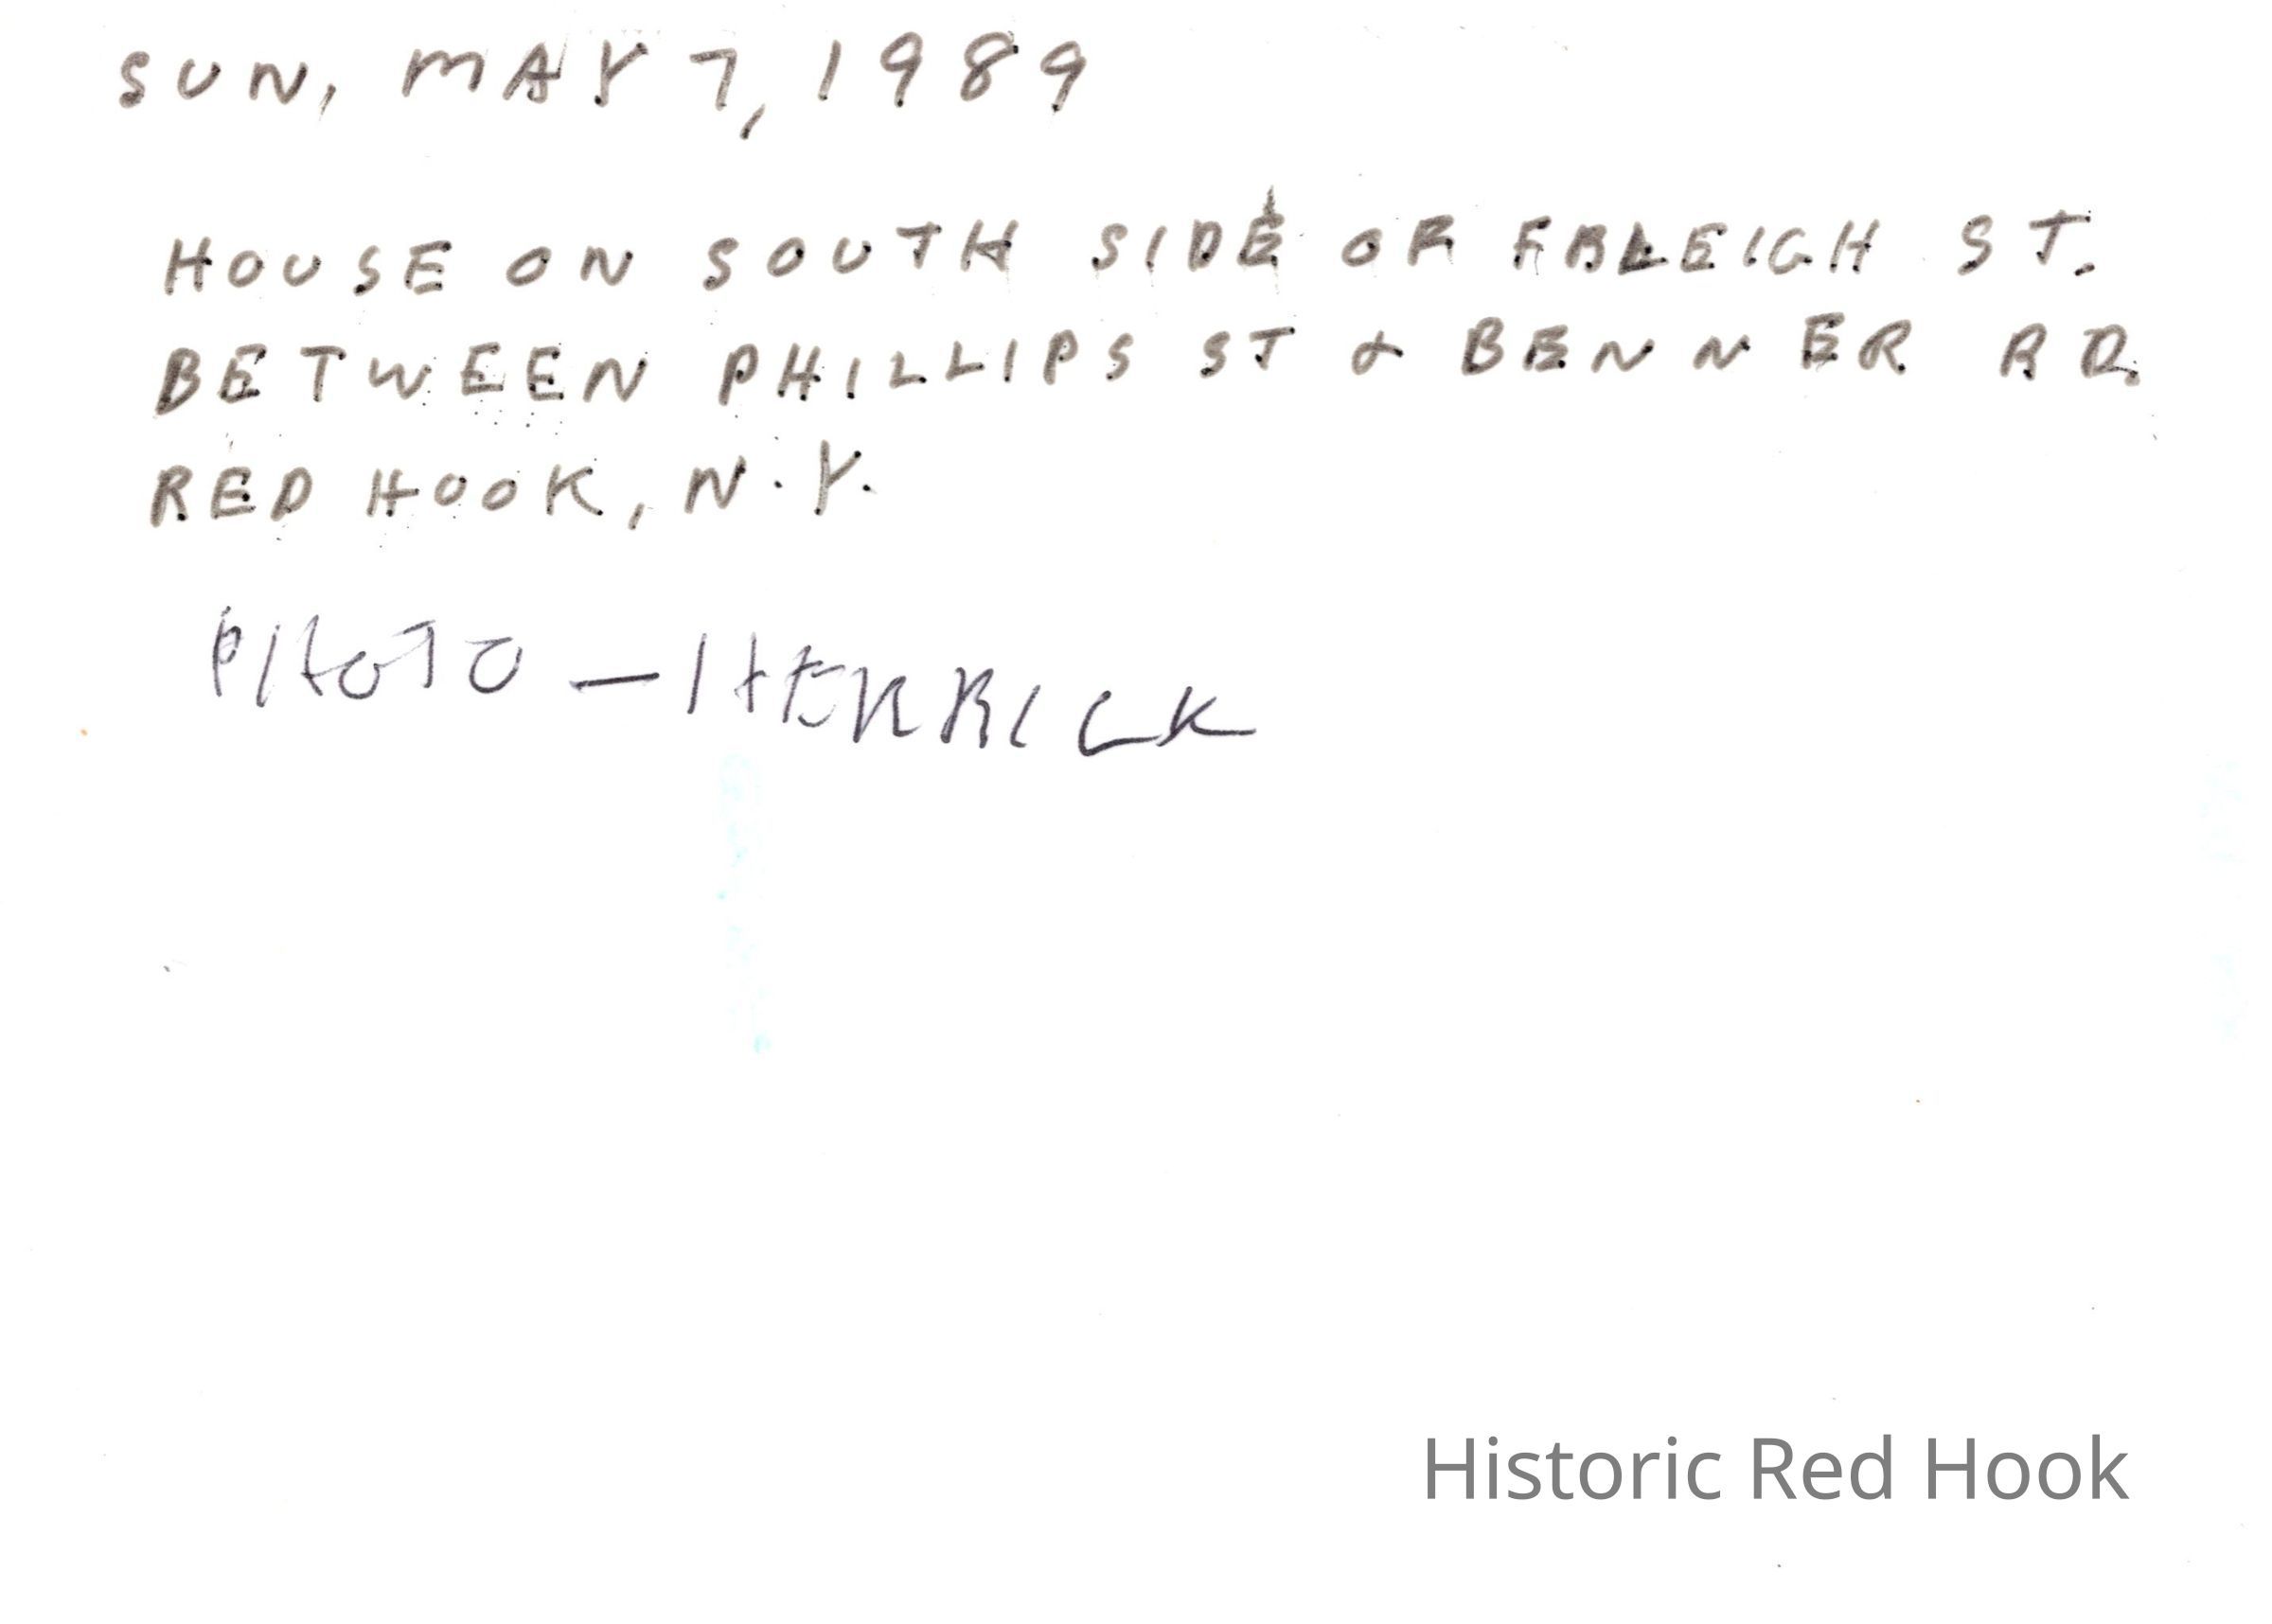 SUN, MAY 7, 1989
HOUSE ON SOUTH SIDE OF FRLEIGH ST.
BETWEEN PHILLIPS ST & BENNER RD.
RED HOOK, N.Y.
PHOTO — HERRICK
Historic Red Hook